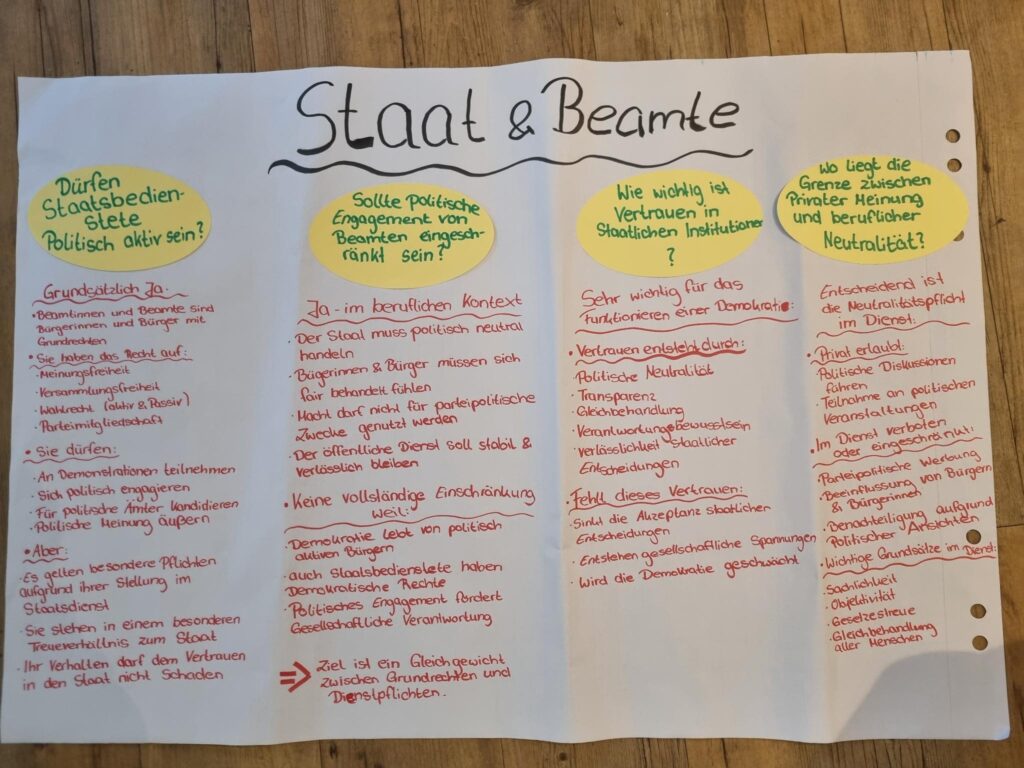 Staat & Beamte
Dürfen
Staatsbedien-
stete
Politisch aktiv sein?
Grundsätzlich Ja:
• Beamtinnen und Beamte sind
Bürgerinnen und Bürger mit
Grundrechten
• Sie haben das Recht auf:
· Meinungsfreiheit
· Versammlungsfreiheit
· Wahlrecht (aktiv & Passiv)
· Parteimitgliedschaft
• Sie dürfen:
· An Demonstrationen teilnehmen
· Sich politisch engagieren
· Für politische Ämter kandidieren
· Politische Meinung äußern
• Aber:
· Es gelten besondere Pflichten
aufgrund ihrer Stellung im
Staatsdienst
· Sie stehen in einem besonderen
Treueverhältnis zum Staat
· Ihr Verhalten darf dem Vertrauen
in den Staat nicht Schaden
Sollte Politische
Engagement von
Beamten eingesch-
ränkt sein?
Ja - im beruflichen Kontext
· Der Staat muss politisch neutral
handeln
· Bügerinnen & Bürger müssen sich
fair behandelt fühlen
· Macht darf nicht für parteipolitische
Zwecke genutzt werden
· Der öffentliche Dienst soll stabil &
verlässlich bleiben
• Keine vollständige Einschränkung
weil:
· Demokratie lebt von politisch
aktiven Bürgern
· auch Staatsbedienstete haben
Demokratische Rechte
· Politisches Engagement fördert
Gesellschaftliche Verantwortung
⇒ Ziel ist ein Gleichgewicht
zwischen Grundrechten und
Dienstpflichten.
Wie wichtig ist
Vertrauen in
Staatlichen Institutionen
?
Sehr wichtig für das
Funktionieren einer Demokratie:
• Vertrauen entsteht durch:
· Politische Neutralität
· Transparenz
· Gleichbehandlung
· Verantwortungsbewusstsein
· verlässlichkeit staatlicher
Entscheidungen
• Fehlt dieses Vertrauen:
· Sinkt die Akzeptanz staatlichen
Entscheidungen
· Entstehen gesellschaftliche Spannungen
· Wird die Demokratie geschwächt
Wo liegt die
Grenze zwischen
Privater Meinung
und beruflicher
Neutralität?
Entscheidend ist
die Neutralitätspflicht
im Dienst:
• Privat erlaubt:
· Politische Diskussionen
führen
· Teilnahme an politischen
Veranstaltungen
• Im Dienst verboten
oder eingeschränkt:
· Parteipolitische Werbung
· Beeinflussung von Bürgern
& Bürgerinnen
· Benachteiligung aufgrund
Politischer Ansichten
• Wichtige Grundsätze im Dienst:
· Sachlichkeit
· Objektivität
· Gesetzestreue
· Gleichbehandlung
aller Menschen